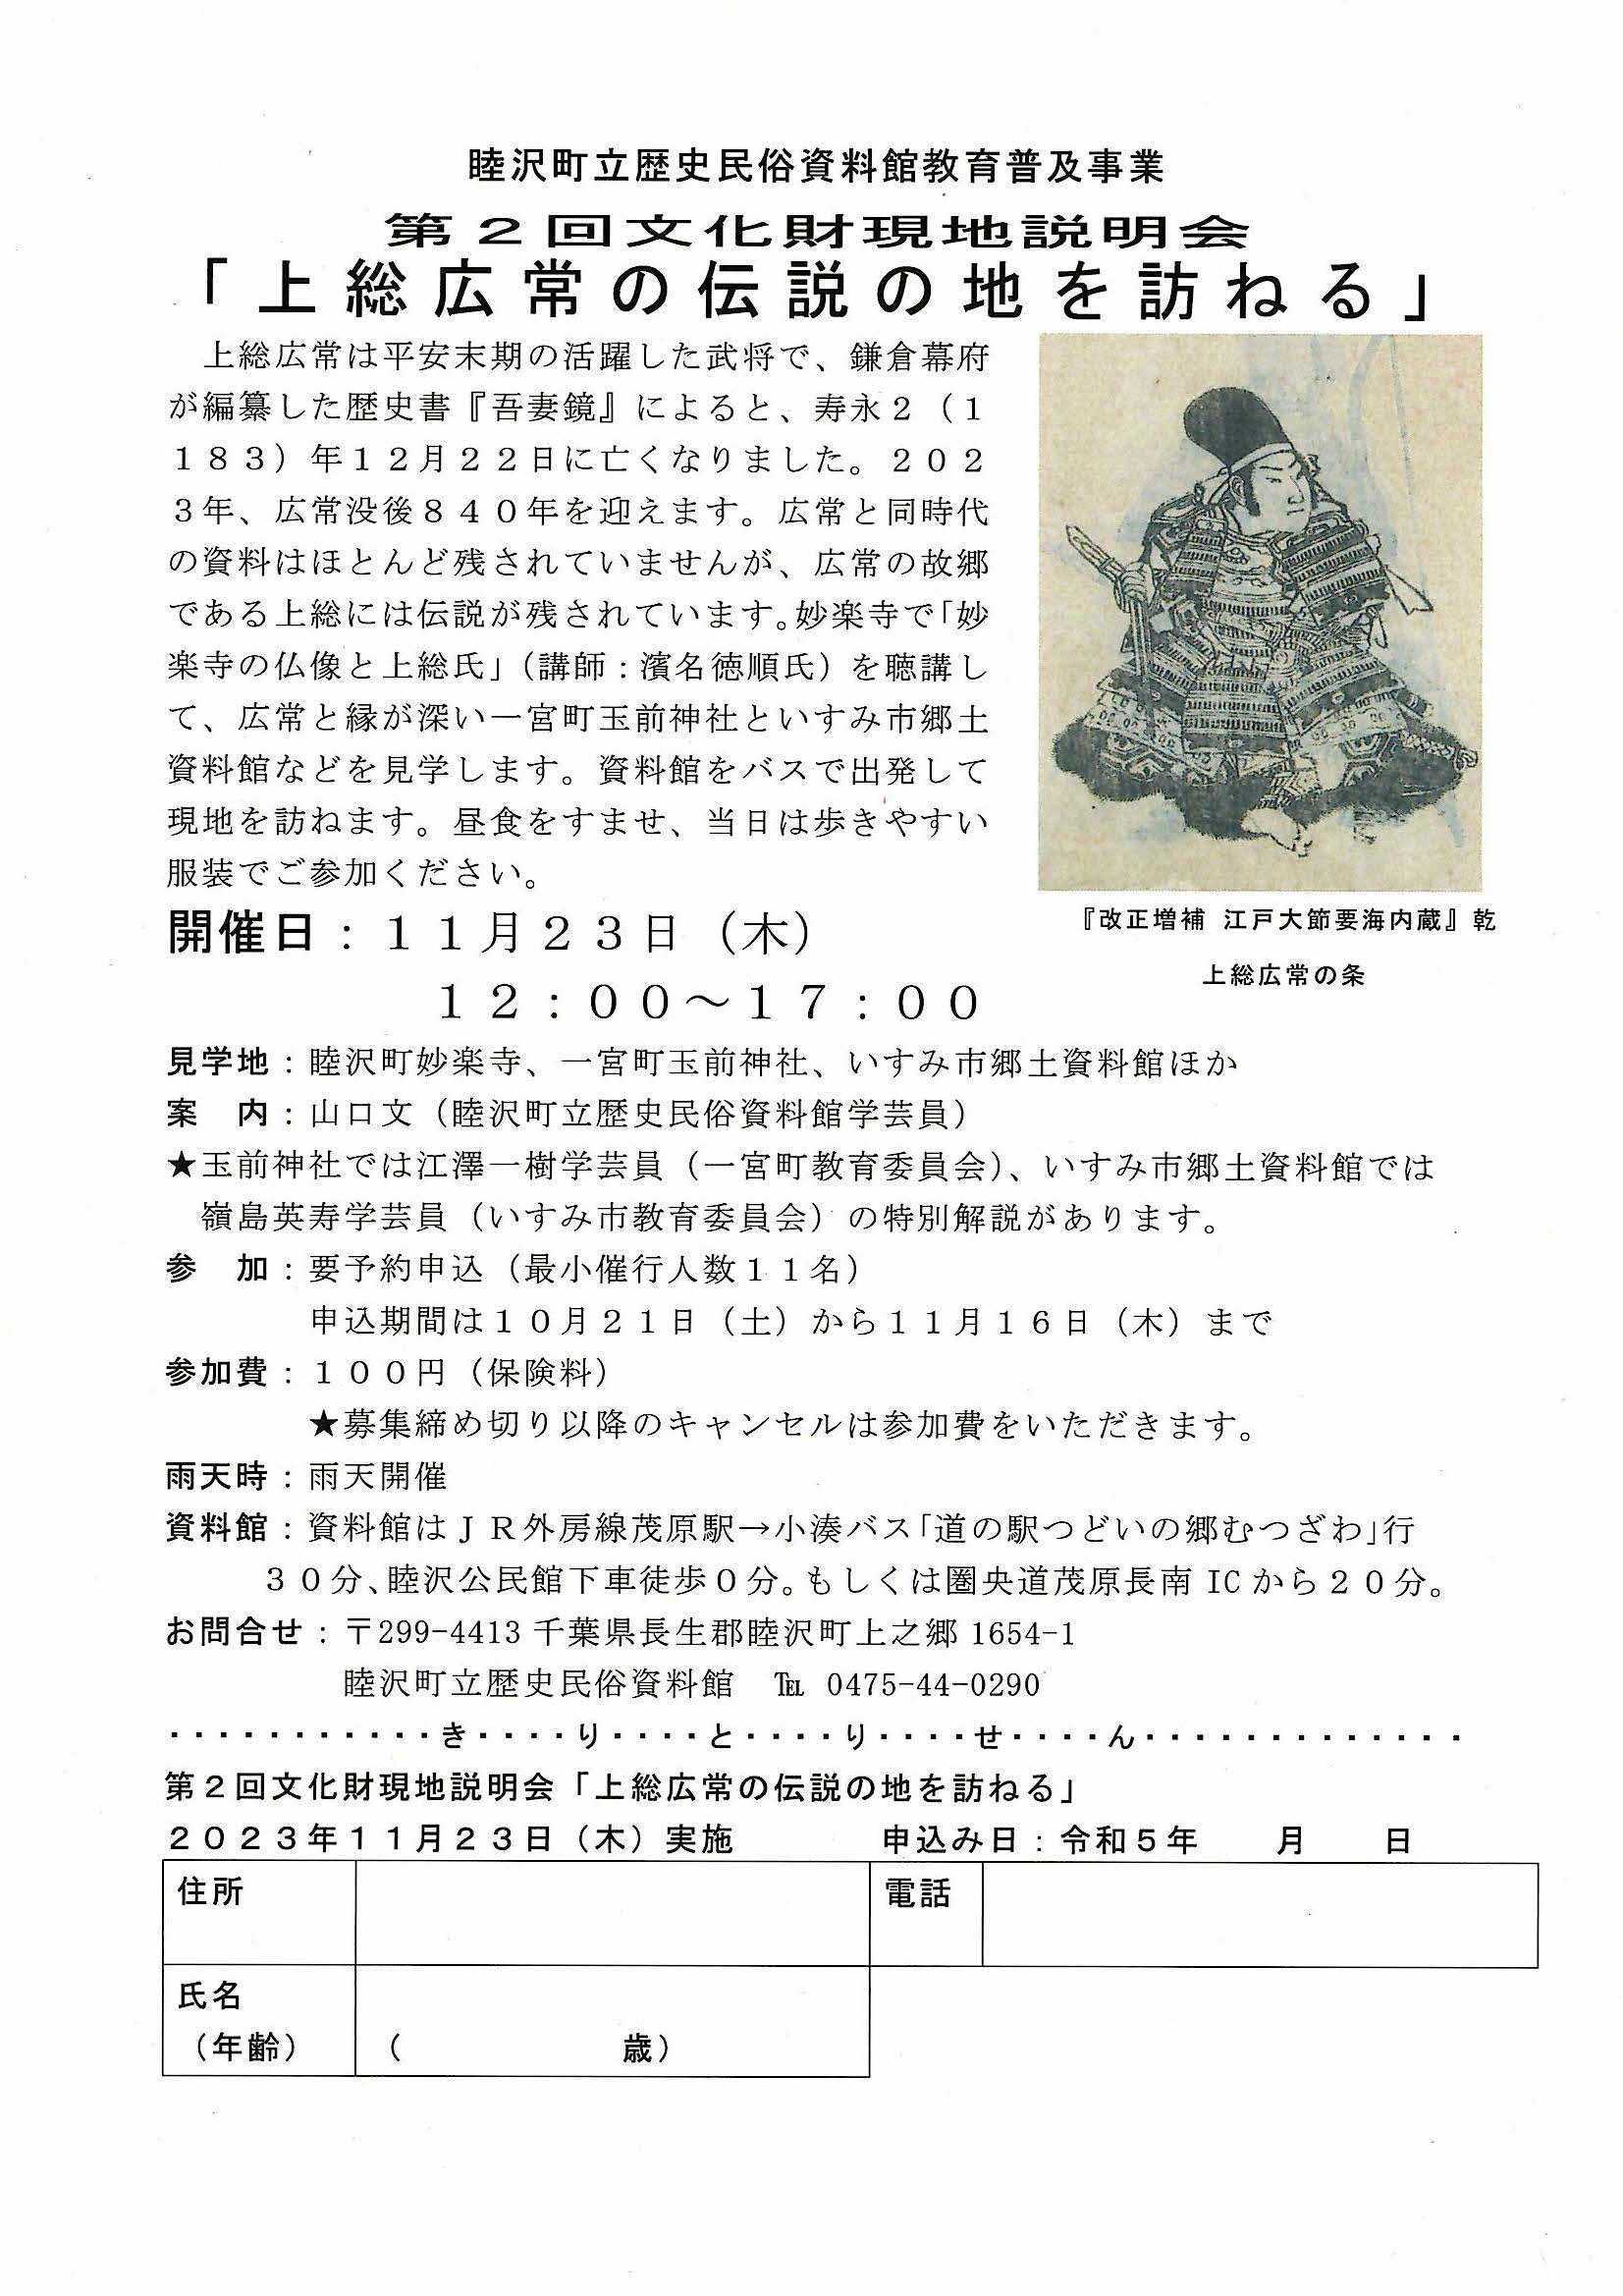 睦沢町立歴史民俗資料館教育普及事業
第２回文化財現地説明会
「上総広常の伝説の地を訪ねる」
上総広常は平安末期の活躍した武将で、鎌倉幕府
が編纂した歴史書『吾妻鏡』によると、寿永２（１
１８３）年１２月２２日に亡くなりました。２０２
３年、広常没後８４０年を迎えます。広常と同時代
の資料はほとんど残されていませんが、広常の故郷
である上総には伝説が残されています。妙楽寺で「妙
楽寺の仏像と上総氏」（講師：濱名徳順氏）を聴講し
て、広常と縁が深い一宮町玉前神社といすみ市郷土
資料館などを見学します。資料館をバスで出発して
現地を訪ねます。昼食をすませ、当日は歩きやすい
服装でご参加ください。
『改正増補 江戸大節要海内蔵』乾
上総広常の条
開催日：１１月２３日（木）
１２：００～１７：００
見学地：睦沢町妙楽寺、一宮町玉前神社、いすみ市郷土資料館ほか
案　内：山口文（睦沢町立歴史民俗資料館学芸員）
★玉前神社では江澤一樹学芸員（一宮町教育委員会）、いすみ市郷土資料館では
嶺島英寿学芸員（いすみ市教育委員会）の特別解説があります。
参　加：要予約申込（最小催行人数１１名）
申込期間は１０月２１日（土）から１１月１６日（木）まで
参加費：１００円（保険料）
★募集締め切り以降のキャンセルは参加費をいただきます。
雨天時：雨天開催
資料館：資料館はＪＲ外房線茂原駅→小湊バス「道の駅つどいの郷むつざわ」行
３０分、睦沢公民館下車徒歩０分。もしくは圏央道茂原長南 IC から２０分。
お問合せ：〒299-4413 千葉県長生郡睦沢町上之郷 1654-1
睦沢町立歴史民俗資料館　℡ 0475-44-0290
・・・・・・・・・・・き・・・・り・・・・と・・・・り・・・・せ・・・・ん・・・・・・・・・・・・・
第２回文化財現地説明会「上総広常の伝説の地を訪ねる」
２０２３年１１月２３日（木）実施　　　　申込み日：令和５年　　月　　日
住所　電話
氏名
（年齢）　（　　　　　　歳）